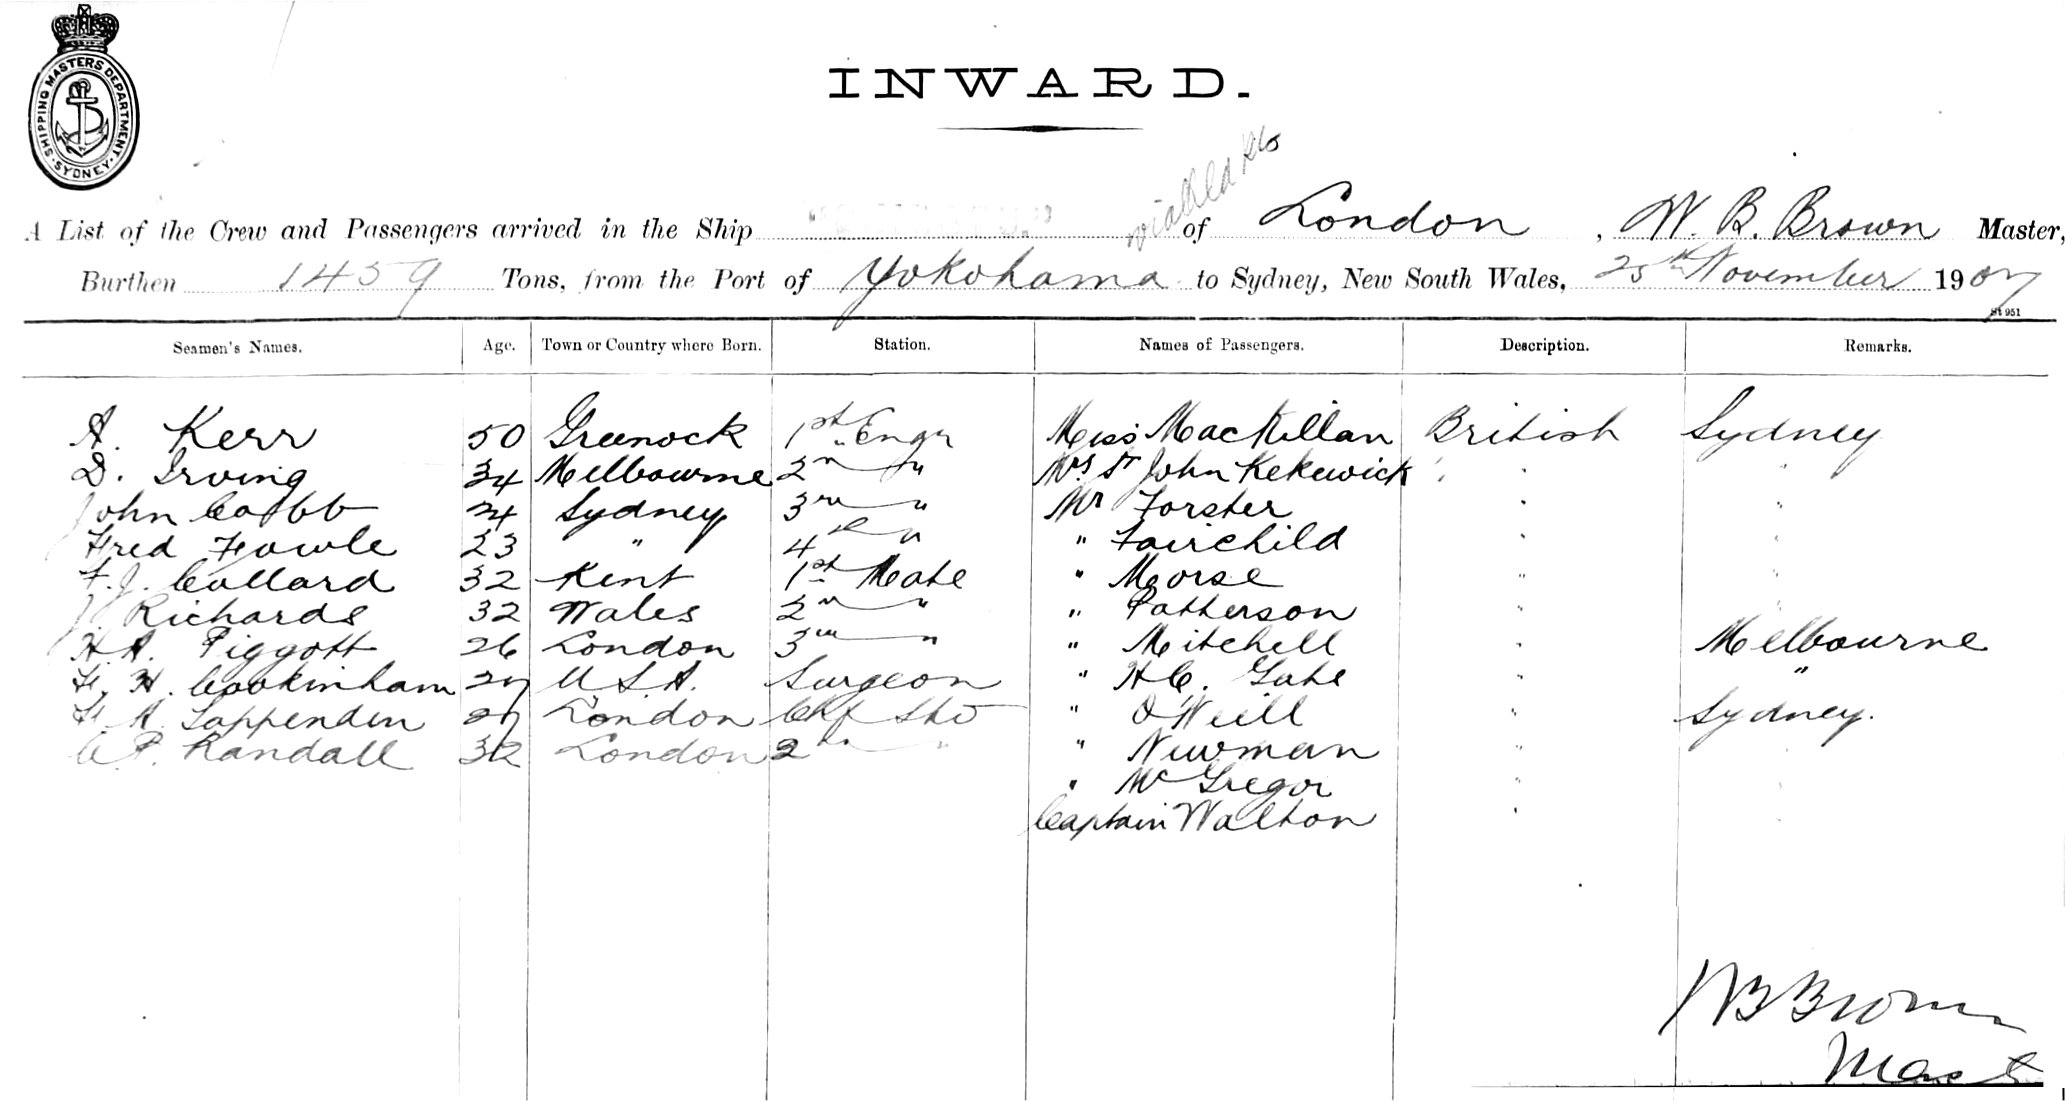 SHIPPING MASTERS DEPARTMENT. SYDNEY
INWARD.
A List of the Crew and Passengers arrived in the Ship of London, W. B. Brown Master,
Burthen 1459 Tons, from the Port of Yokohama to Sydney, New South Wales, 25th November 1907
St 951
Seamen's Names. Age. Town or Country where Born. Station. Names of Passengers. Description. Remarks.
A. Kerr 50 Greenock 1st Engr Miss MacKillan British Sydney
D. Irving 34 Melbourne 2nd " Mrs St John Kekewick " "
John Cobb 24 Sydney 3rd " Mr Forster " "
Fred Fowle 23 " 4th " " Fairchild " "
F. J. Collard 32 Kent 1st Mate " Morse " "
J Richards 32 Wales 2nd " " Patterson " "
H. A. Piggott 26 London 3rd " " Mitchell " Melbourne
F. H. Cookinham 27 U.S.A. Surgeon " H C. Gate " "
F A Lappenden 27 London Chf Std " O'Neill " Sydney.
C. P. Randall 32 London 2nd " " Newman " "
" McGregor " "
Captain Walton " "
W B Brown
Master